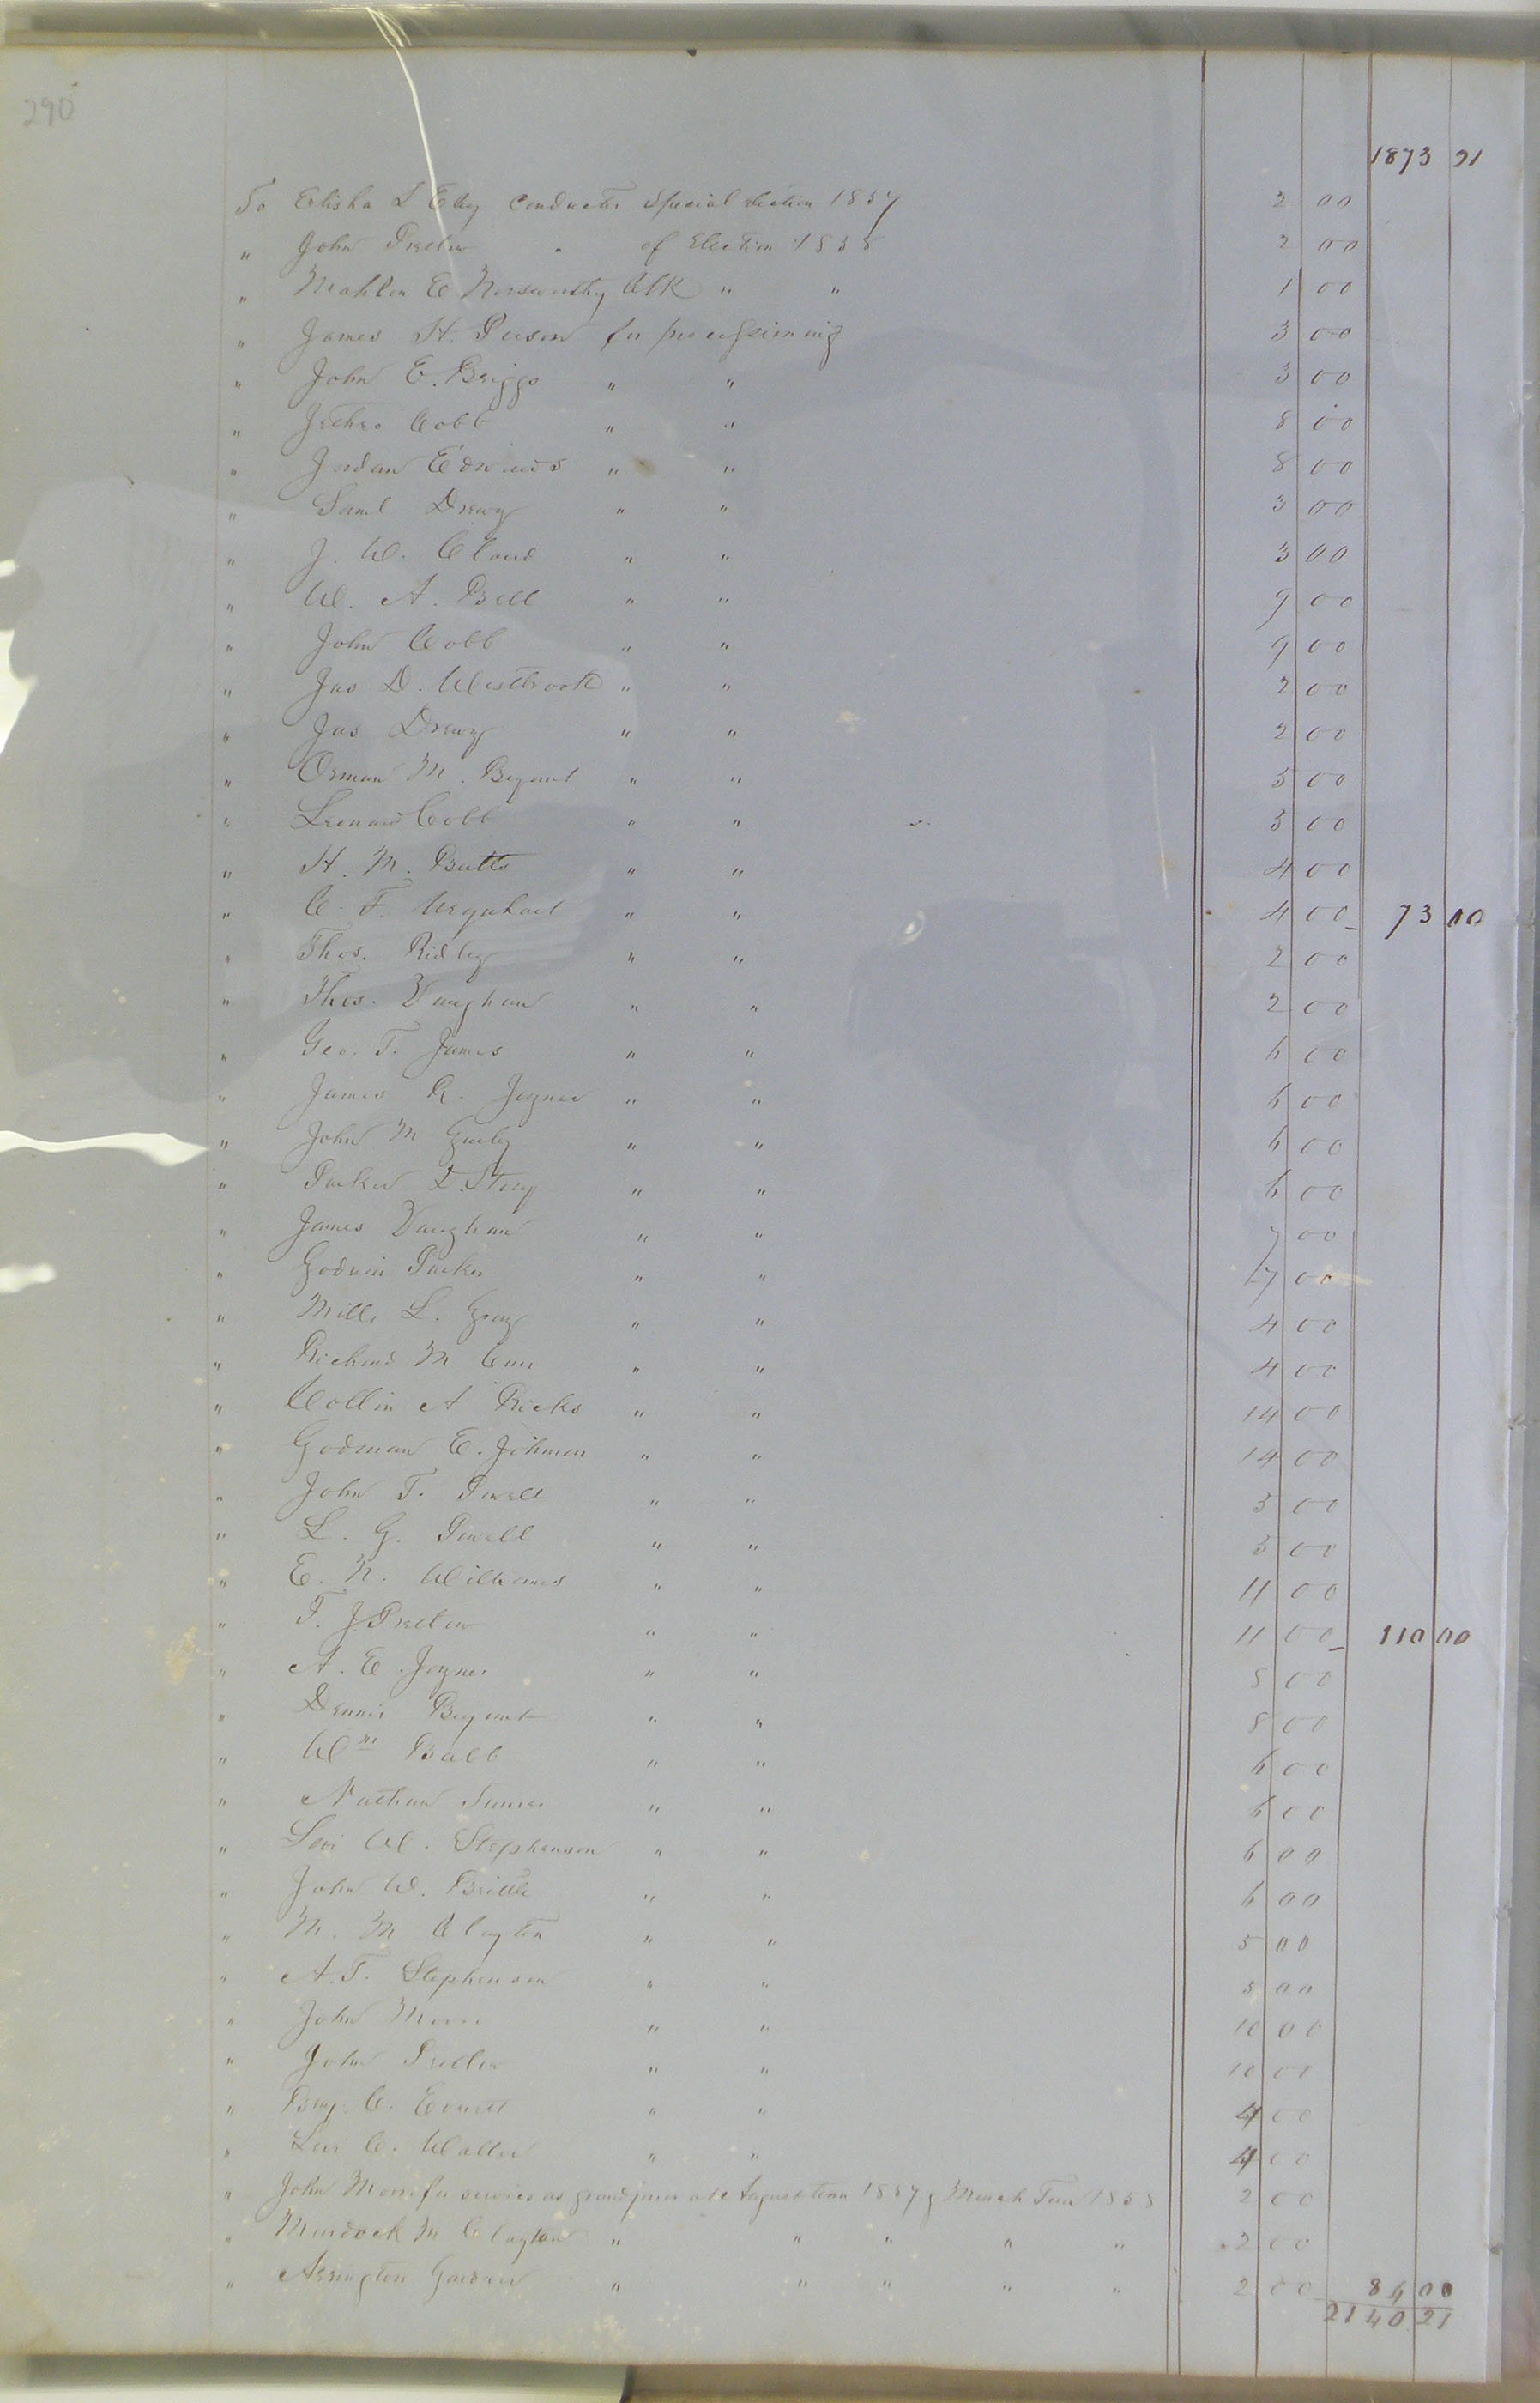 290
1873 21
To Elisha L Eley Conductor Special election 1857 2 00
" John Pretlow " of Election 1858 2 00
" Mahlon E Norsworthy Clk " " 1 00
" James H. for processioning 3 00
" John E. Briggs " " 3 00
" Jethro Cobb " " 8 00
" Jordan Edwards " " 8 00
" Saml Drewry " " 3 00
" J. W. Claud " " 3 00
" W. A. Bell " " 9 00
" John Cobb " " 9 00
" Jas D. Westbrook " " 2 00
" Jas Drewry " " 2 00
" Orman M. Bryant " " 5 00
" Leonard Cobb " " 5 00
" H. M. Butts " " 4 00
" C. F. Urquhart " " 4 00 73 00
" Thos. Ridley " " 2 00
" Thos. Vaughan " " 2 00
" Geo. T. James " " 6 00
" James R. Joyner " " 6 00
" John M Gurley " " 6 00
" Parker D. Story " " 6 00
" James Vaughan " " 7 00
" Godwin Parker " " 7 00
" Mills L. Gray " " 4 00
" Richard M " " 4 00
" Collin A Ricks " " 14 00
" Godman E. Johnson " " 14 00
" John T. Powell " " 5 00
" L. G. Powell " " 5 00
" E. N. Williams " " 11 00
" T. J. Pretlow " " 11 00 110 00
" A. E. Joyner " " 8 00
" Dennis Bryant " " 8 00
" Wm Babb " " 6 00
" Nathan Turner " " 6 00
" Levi W. Stephenson " " 6 00
" John W. Brittle " " 6 00
" M. M Clayton " " 5 00
" A. T. Stephenson " " 5 00
" John Morris " " 10 00
" John Pretlow " " 10 00
" Benj. C. " " 4 00
" Levi C. Waller " " 4 00
" John for services as grand juror at August Term 1857 & March Term 1858 2 00
" Murdock M Clayton " " " " " 2 00
" Arrington Gardner " " " " " 2 00 84 00
2140 21